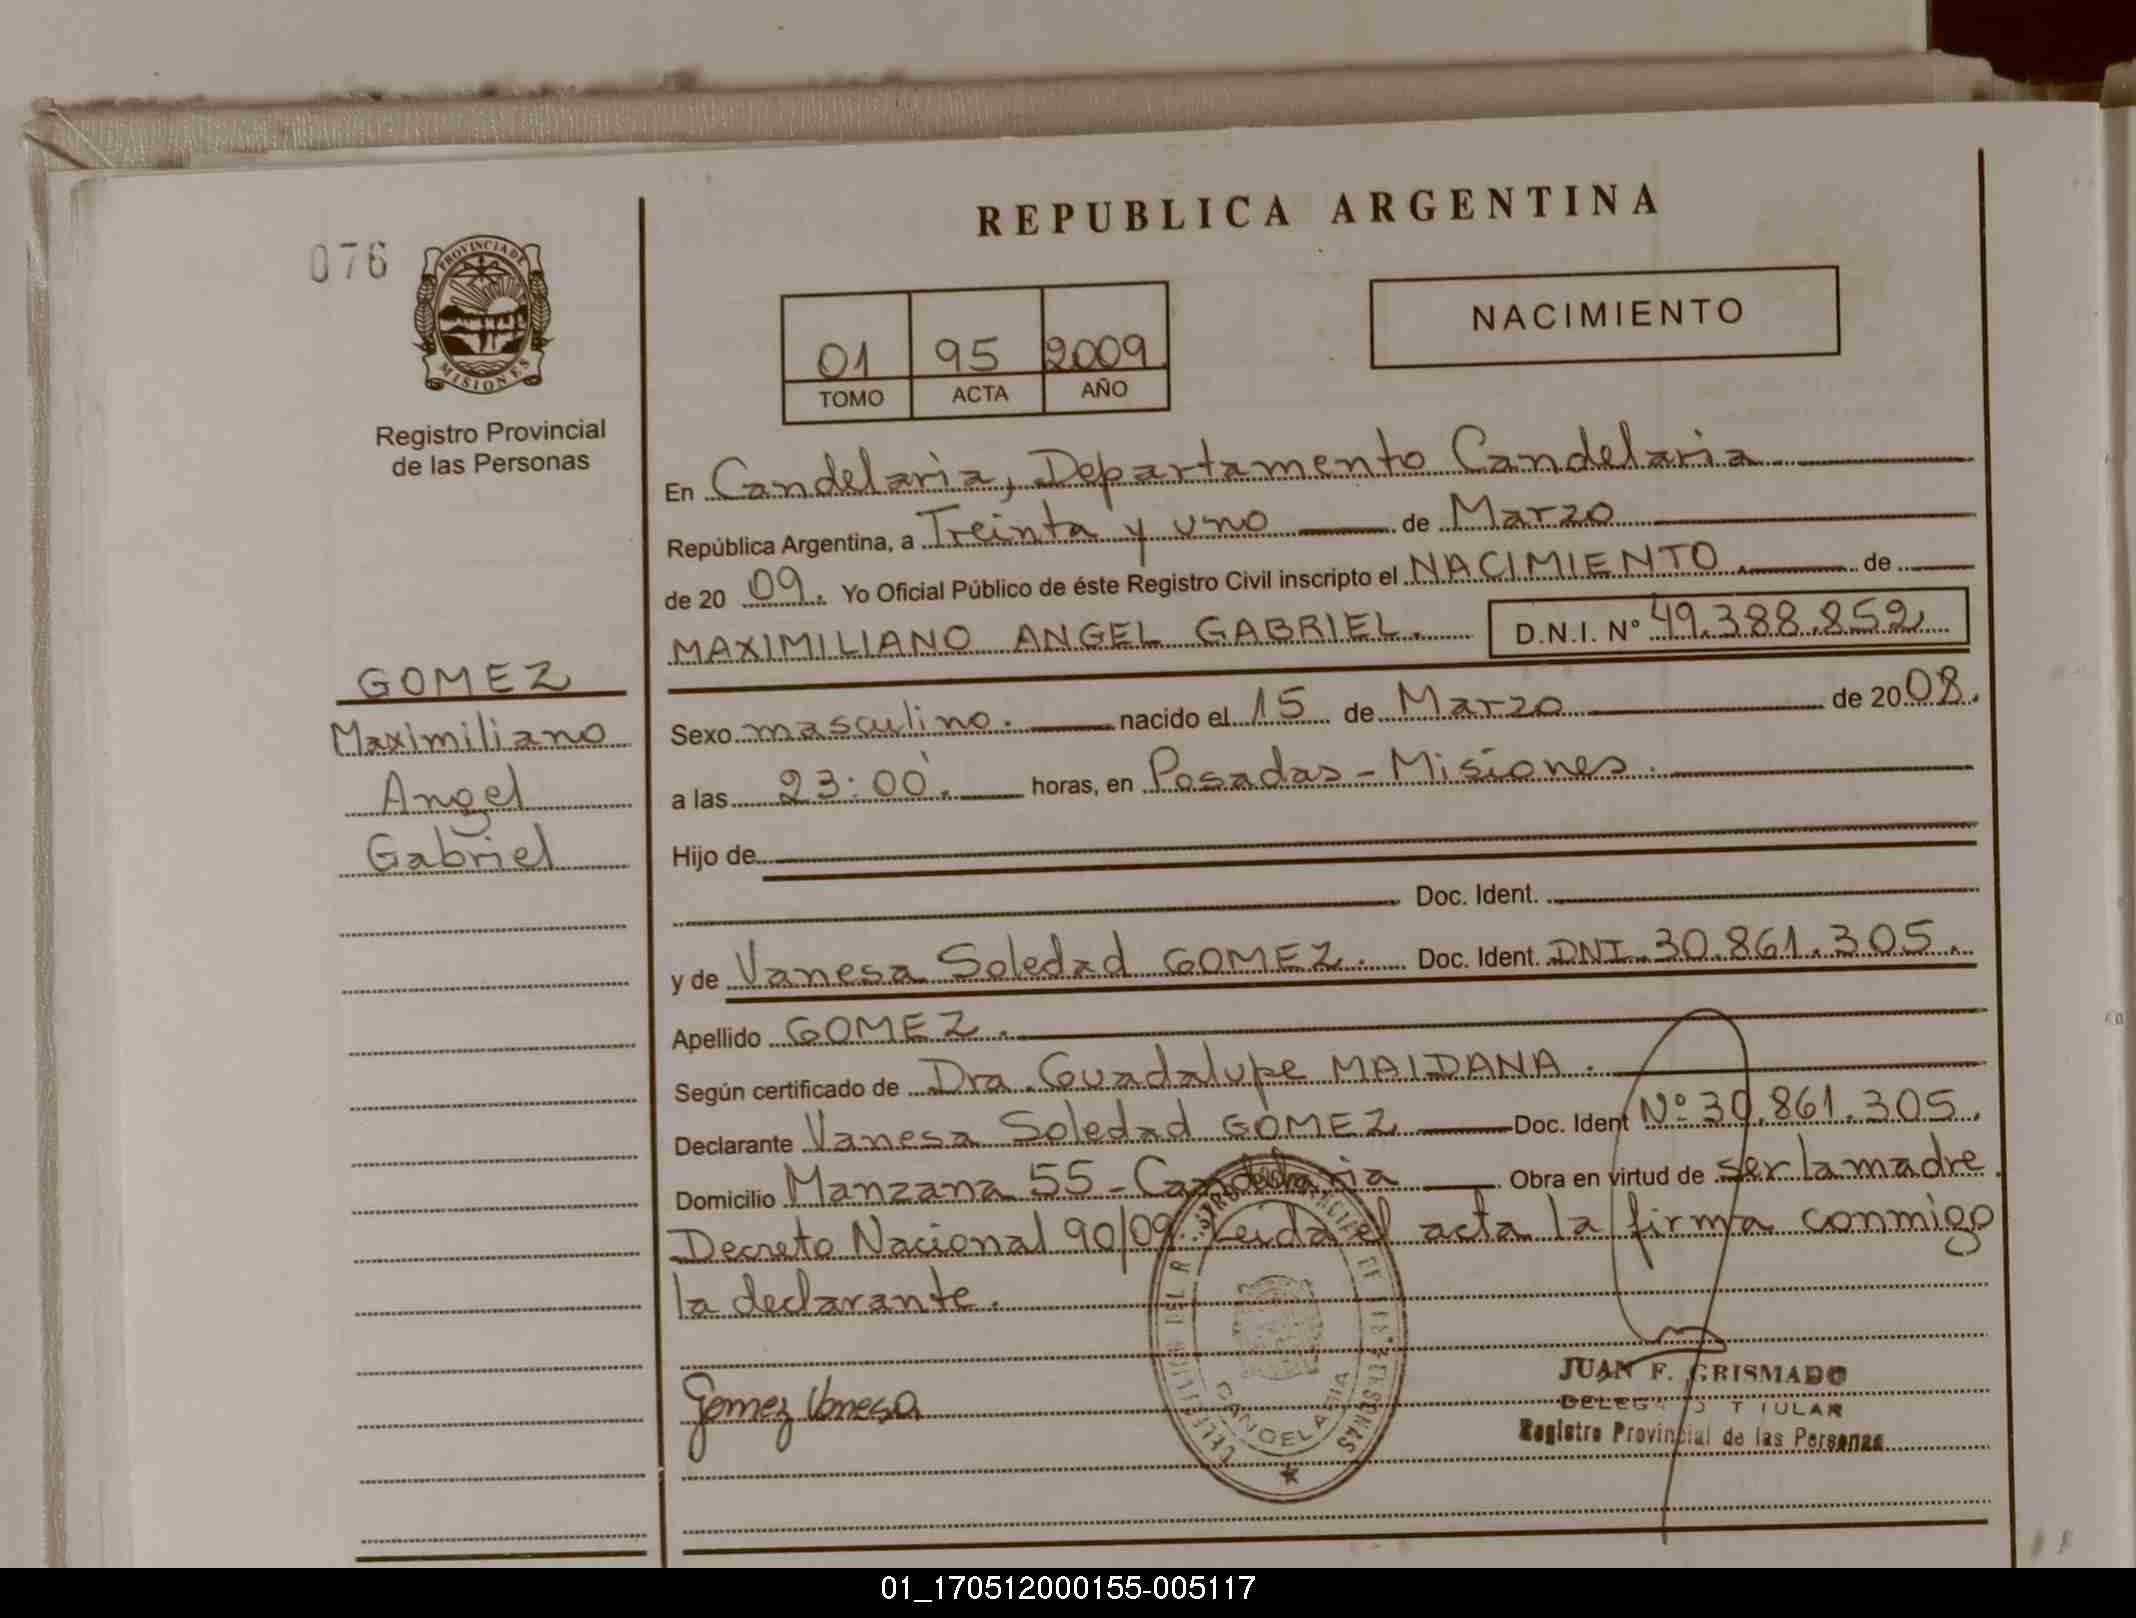 REPUBLICA ARGENTINA
076
PROVINCIA DE MISIONES
NACIMIENTO
01 95 2009
TOMO ACTA AÑO
Registro Provincial
de las Personas
En Candelaria, Departamento Candelaria
República Argentina, a Treinta y uno de Marzo
de 20 09. Yo Oficial Público de éste Registro Civil inscripto el NACIMIENTO. de
MAXIMILIANO ANGEL GABRIEL. D.N.I. Nº 49.388.852
GOMEZ
Maximiliano
Angel
Gabriel
Sexo masculino. nacido el 15 de Marzo de 20 08.
a las 23:00. horas, en Posadas - Misiones.
Hijo de
Doc. Ident.
y de Vanesa Soledad GOMEZ. Doc. Ident. DNI 30.861.305.
Apellido GOMEZ.
Según certificado de Dra. Guadalupe MAIDANA.
Declarante Vanesa Soledad GOMEZ Doc. Ident Nº 30.861.305.
Domicilio Manzana 55 - Candelaria Obra en virtud de ser la madre.
Decreto Nacional 90/09. Leida el acta la firma conmigo
la declarante.
Gomez Vanesa
CANDELARIA
JUAN F. GRISMADO
DELEGADO TITULAR
Registro Provincial de las Personas
01_170512000155-005117